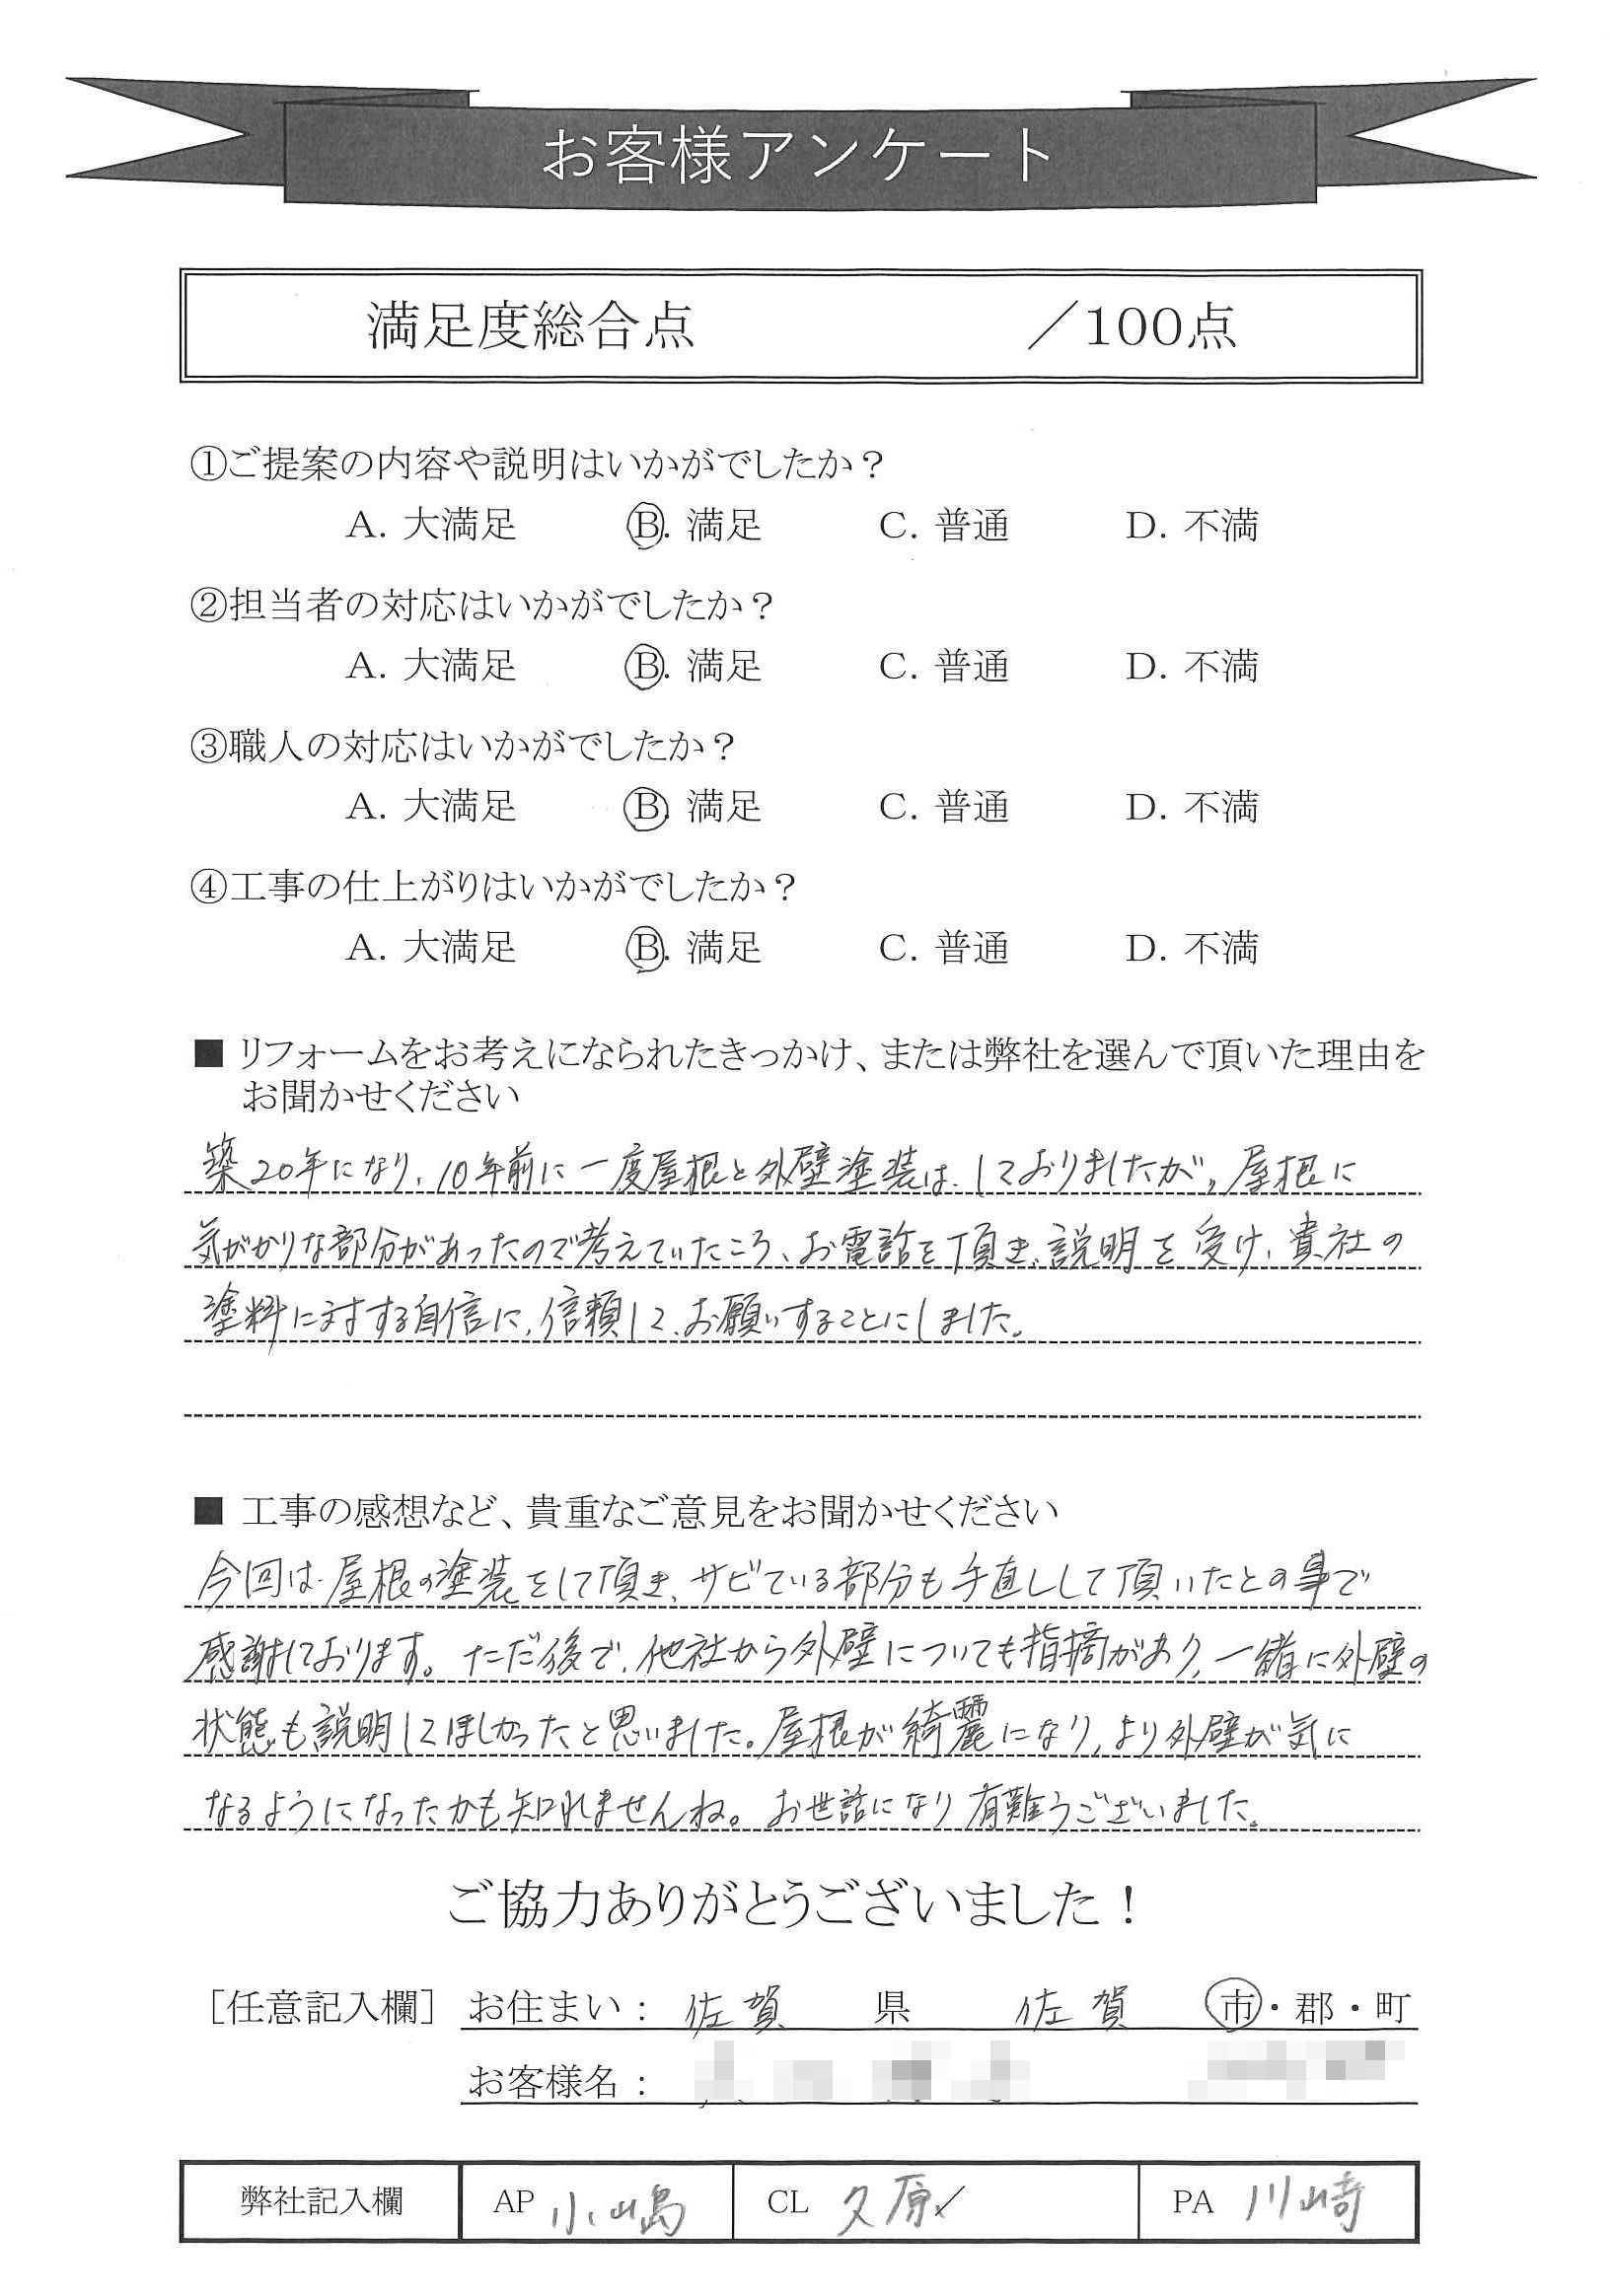 お客様アンケート
満足度総合点 ／100点
①ご提案の内容や説明はいかがでしたか？
A. 大満足 B. 満足 C. 普通 D. 不満
②担当者の対応はいかがでしたか？
A. 大満足 B. 満足 C. 普通 D. 不満
③職人の対応はいかがでしたか？
A. 大満足 B. 満足 C. 普通 D. 不満
④工事の仕上がりはいかがでしたか？
A. 大満足 B. 満足 C. 普通 D. 不満
■ リフォームをお考えになられたきっかけ、または弊社を選んで頂いた理由を
お聞かせください
築20年になり、10年前に一度屋根と外壁塗装は、しておりましたが、屋根に
気がかりな部分があったので考えていたころ、お電話を頂き、説明を受け、貴社の
塗料に対する自信に、信頼して、お願いすることにしました。
■ 工事の感想など、貴重なご意見をお聞かせください
今回は、屋根の塗装をして頂き、サビている部分も手直しして頂いたとの事で
感謝しております。ただ後で、他社から外壁についても指摘があり、一緒に外壁の
状態も説明してほしかったと思いました。屋根が綺麗になり、より外壁が気に
なるようになったかも知れませんね。お世話になり有難うございました。
ご協力ありがとうございました！
［任意記入欄］ お住まい： 佐賀 県 佐賀 市・郡・町
お客様名：
弊社記入欄 AP 小嶋 CL 久原 PA 川崎